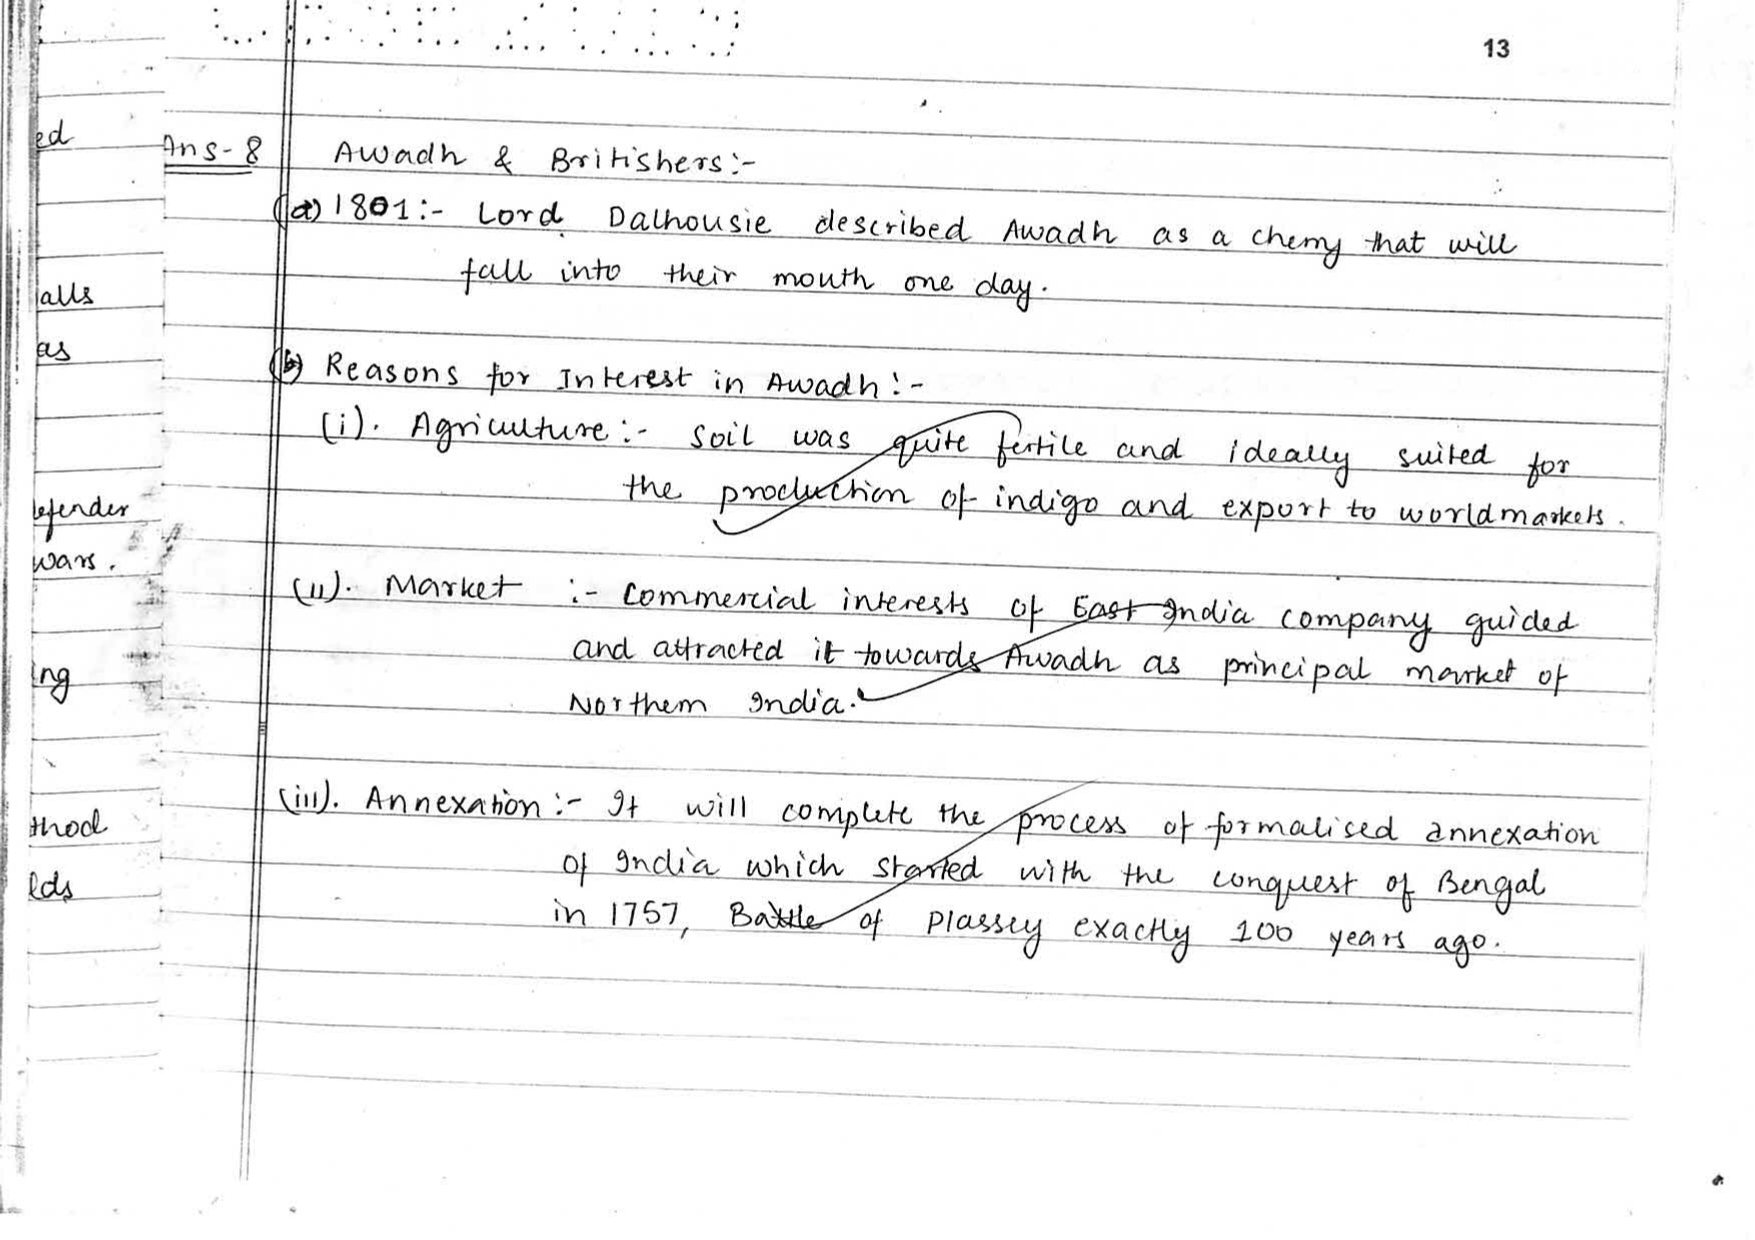 13
ed
alls
as
efender
wars.
ing
thod
lds
Ans-8 Awadh & Britishers:-
(a) 1801:- Lord Dalhousie described Awadh as a cherry that will
fall into their mouth one day.
(b) Reasons for Interest in Awadh:-
(i). Agriculture:- soil was quite fertile and ideally suited for
the production of indigo and export to worldmarkets.
(ii). Market :- Commercial interests of East India company guided
and attracted it towards Awadh as principal market of
Northern India.
(iii). Annexation:- It will complete the process of formalised annexation
of India which started with the conquest of Bengal
in 1757, Battle of Plassey exactly 100 years ago.